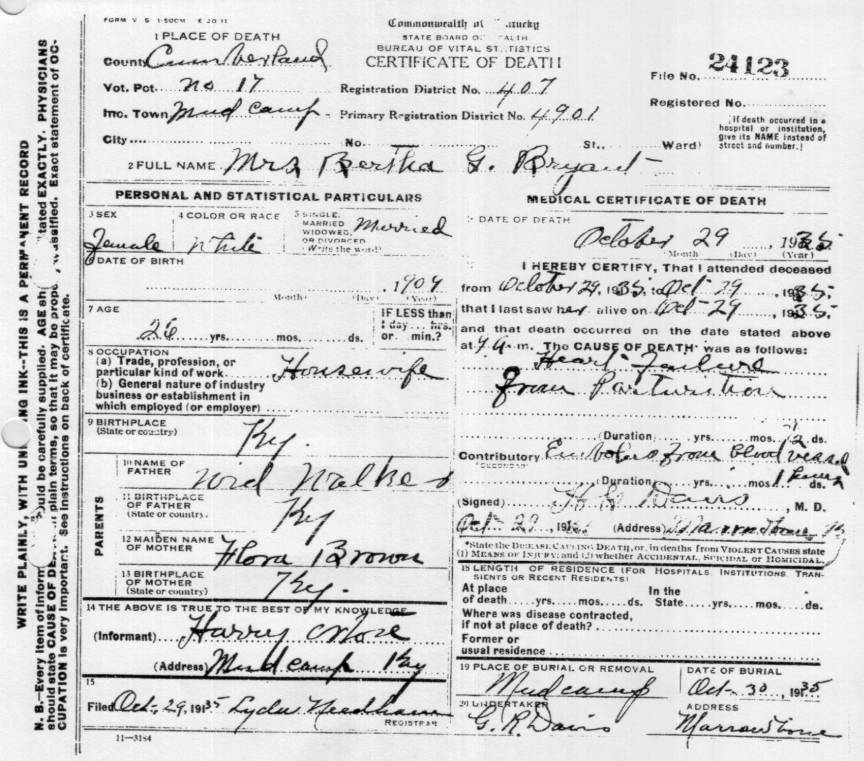 FORM V. S. 1-50CM
Commonwealth of Kentucky
STATE BOARD OF HEALTH
BUREAU OF VITAL STATISTICS
CERTIFICATE OF DEATH
File No. 24123
Registered No.
(If death occurred in a hospital or institution, give its NAME instead of street and number.)
1 PLACE OF DEATH
County Cumberland
Vot. Pct. No 17
Registration District No. 407
Inc. Town Mud camp
Primary Registration District No. 4901
City No. St., Ward)
2 FULL NAME Mrs Bertha G. Bryant
PERSONAL AND STATISTICAL PARTICULARS
3 SEX Female
4 COLOR OR RACE White
5 SINGLE, MARRIED WIDOWED, OR DIVORCED (Write the word) Married
6 DATE OF BIRTH
1909
(Month) (Day) (Year)
7 AGE
26 yrs. mos. ds.
IF LESS than 1 day hrs. or min.?
8 OCCUPATION
(a) Trade, profession, or particular kind of work Housewife
(b) General nature of industry
business or establishment in
which employed (or employer)
9 BIRTHPLACE
(State or country) Ky.
PARENTS
10 NAME OF FATHER Wid Walker
11 BIRTHPLACE OF FATHER (State or country. Ky
12 MAIDEN NAME OF MOTHER Flora Brown
13 BIRTHPLACE OF MOTHER (State or country) Ky.
14 THE ABOVE IS TRUE TO THE BEST OF MY KNOWLEDGE
(Informant) Harry
(Address) Mud camp Ky
15
Filed Oct. 29, 1935 Lyda Needham
REGISTRAR
11-3184
MEDICAL CERTIFICATE OF DEATH
DATE OF DEATH
October 29, 1935
(Month (Day) (Year)
I HEREBY CERTIFY, That I attended deceased
from October 29, 1935, to Oct 29, 1935.
that I last saw her alive on Oct 29, 1935.
and that death occurred on the date stated above
at m. The CAUSE OF DEATH* was as follows:
Heart Failure
from Parturition
(Duration) yrs. mos. 2 ds.
Contributory Embolus from blood vessel
SECONDARY
(Duration) yrs. mos. 1 ds.
(Signed) Davis, M. D.
Oct-29, 19 (Address) Marrowbone Ky
*State the DISEASE CAUSING DEATH, or, in deaths from VIOLENT CAUSES state
(1) MEANS OF INJURY; and (2) whether ACCIDENTAL, SUICIDAL or HOMICIDAL.
18 LENGTH OF RESIDENCE (FOR HOSPITALS, INSTITUTIONS, TRANSIENTS OR RECENT RESIDENTS)
At place of death yrs. mos. ds.
In the State yrs. mos. ds.
Where was disease contracted,
if not at place of death?
Former or
usual residence
19 PLACE OF BURIAL OR REMOVAL
Mudcamp
DATE OF BURIAL
Oct 30, 1935
20 UNDERTAKER
G. R. Davis
ADDRESS
Marrowbone
WRITE PLAINLY, WITH INK--THIS IS A PERMANENT RECORD
N. B.--Every item of should be carefully supplied. AGE stated EXACTLY. PHYSICIANS
should state CAUSE OF plain terms, so that it may be classified. Exact statement of OC-
CUPATION is very important. See instructions on back of certificate.